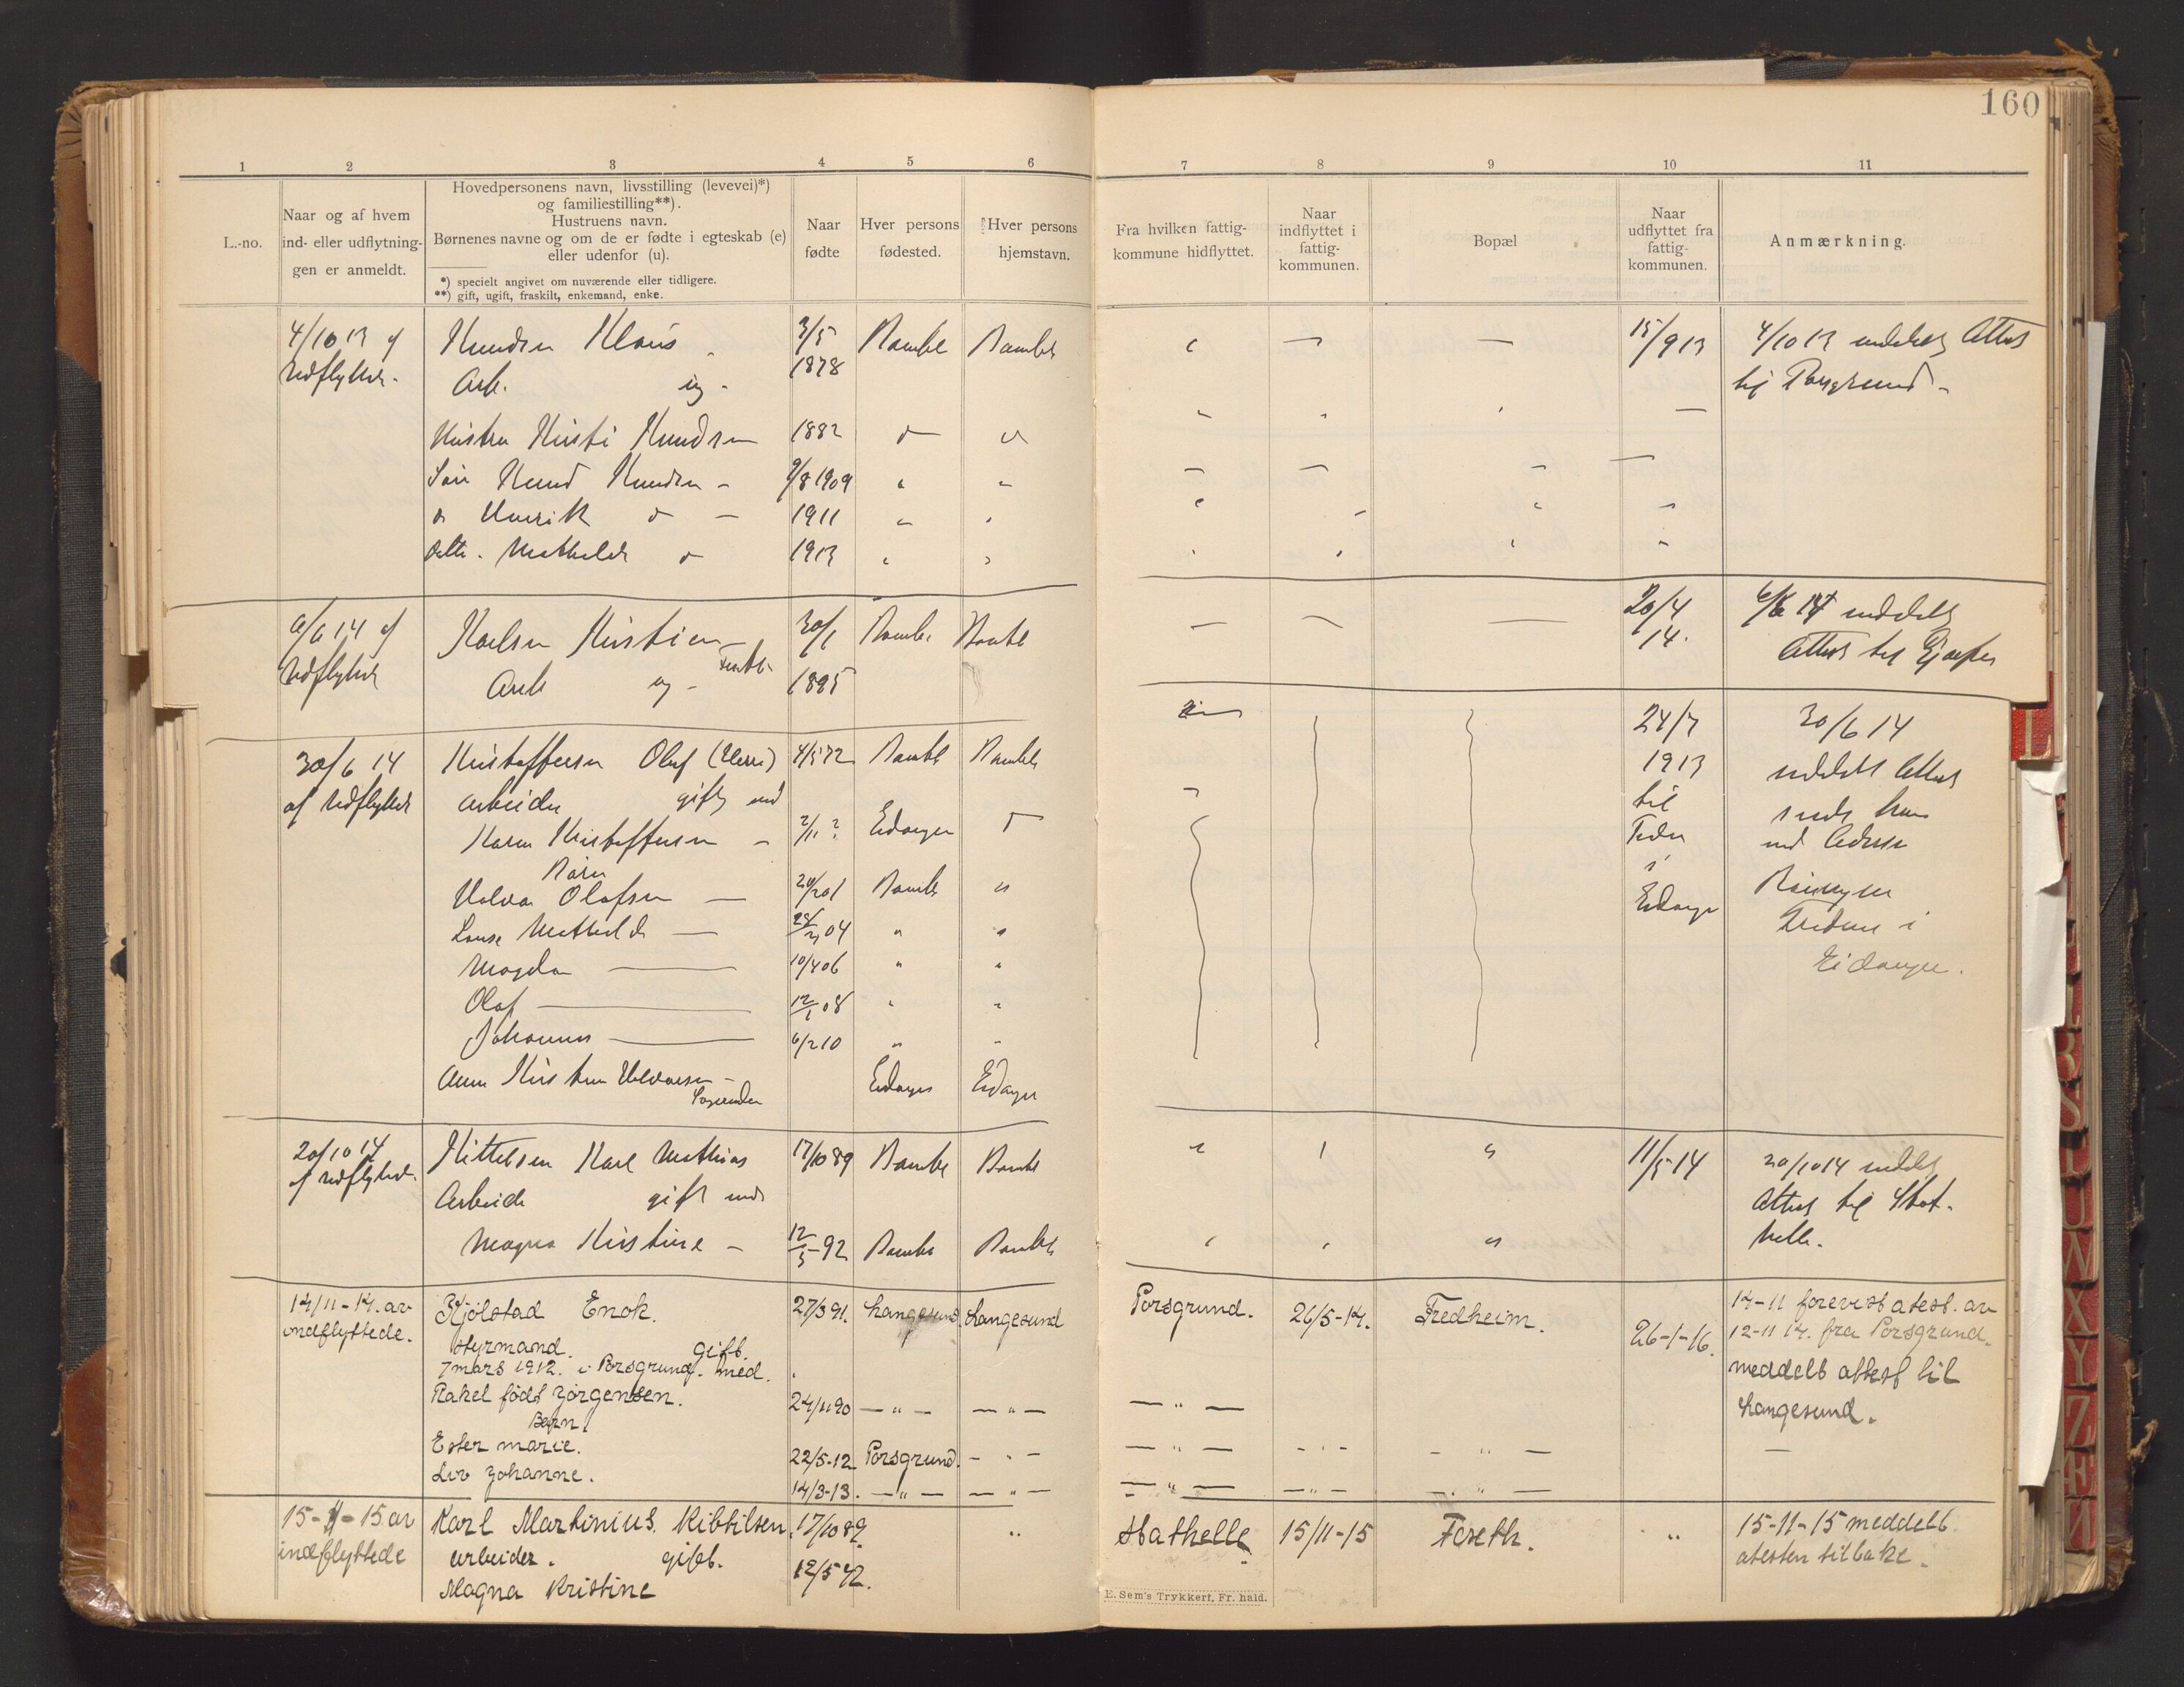 160
1 2 3 4 5 6 7 8 9 10 11
L.-no.
Naar og af hvem
ind- eller udflytnin-
gen er anmeldt.
Hovedpersonens navn, livsstilling (levevei)*)
og familiestilling**).
Hustruens navn.
Børnenes navne og om de er fødte i egteskab (e)
eller udenfor (u).
*) specielt angivet om nuværende eller tidligere.
**) gift, ugift, fraskilt, enkemand, enke.
Naar
fødte
Hver persons
fødested.
Hver persons
hjemstavn.
Fra hvilken fattig-
kommune hidflyttet.
Naar
indflyttet i
fattig-
kommunen.
Bopæl
Naar
udflyttet fra
fattig-
kommunen.
Anmærkning.
4/10 13 af Knudsen Klaus 3/5 Bamble Bamble 15/9 13 4/10 13 meddelt Attest
Udflyttede. Arb. ug - 1878 til Porsgrund -
Hustru Kirsti Knudsen 1882
Søn Knud Knudsen - 9/8 1909
Henrik 1911
Datter. Mathilde 1913
6/6 14 af Karlsen Kristian 30/1 Bamble Bamble 20/4 6/6 14 meddelt
Udflyttede Arb ug - 1895 14. Attest til Gjerpen
30/6 14 Kristoffersen Olaf 4/5 72 Bamble Bamble 24/7 30/6 14
af Udflyttede arbeider gift med 1913 meddelt Attest
Karen Kristoffersen - 2/11 ? Eidanger til sendt ham
Børn med Adresse
Halvor Olafsen Bamble i
Louise Mathilde 04 Eidanger
Magda 10/4 06 i
Olaf 12/1 08 Eidanger.
Johannes 6/2 10
Anna Kirstine Halvorsen - Eidanger Eidanger
20/10 14 Kittelsen Karl Mathias 17/10 89 Bamble Bamble 11/5 14 20/10 14 meddelt
af udflyttede. Arbeider gift med Attest til Stat-
Magna Kirstine - 12/5-92 Bamble Bamble helle.
14/11-14. av Kjølstad Enok. 27/3 91. Langesund. Langesund Porsgrund. 26/5-14. Fredheim. 26-1-16. 14-11 forevist atest. av
indflyttede. Styrmand. gift. 12-11 14. fra Porsgrund.
7 mars 1912. i Porsgrund. med. meddelt attest til
Rakel født Jørgensen. 24/11 90 — " — — " — — " — Langesund.
Børn.
Ester marie. 22/5-12 Porsgrund. - " - — " — - " - - " —
Liv Johanne. 14/3-13. — " — — " — — " — — " — — " —
15-11-15 av Karl Martinius Kittilsen. 17/10 89. " Stathelle 15/11-15 Foreth. " 15-11-15 meddelt
indflyttede arbeider. gift. atesten tilbake.
Magna Kristine 12/5 92.
E. Sem's Trykkeri, Fr. hald.